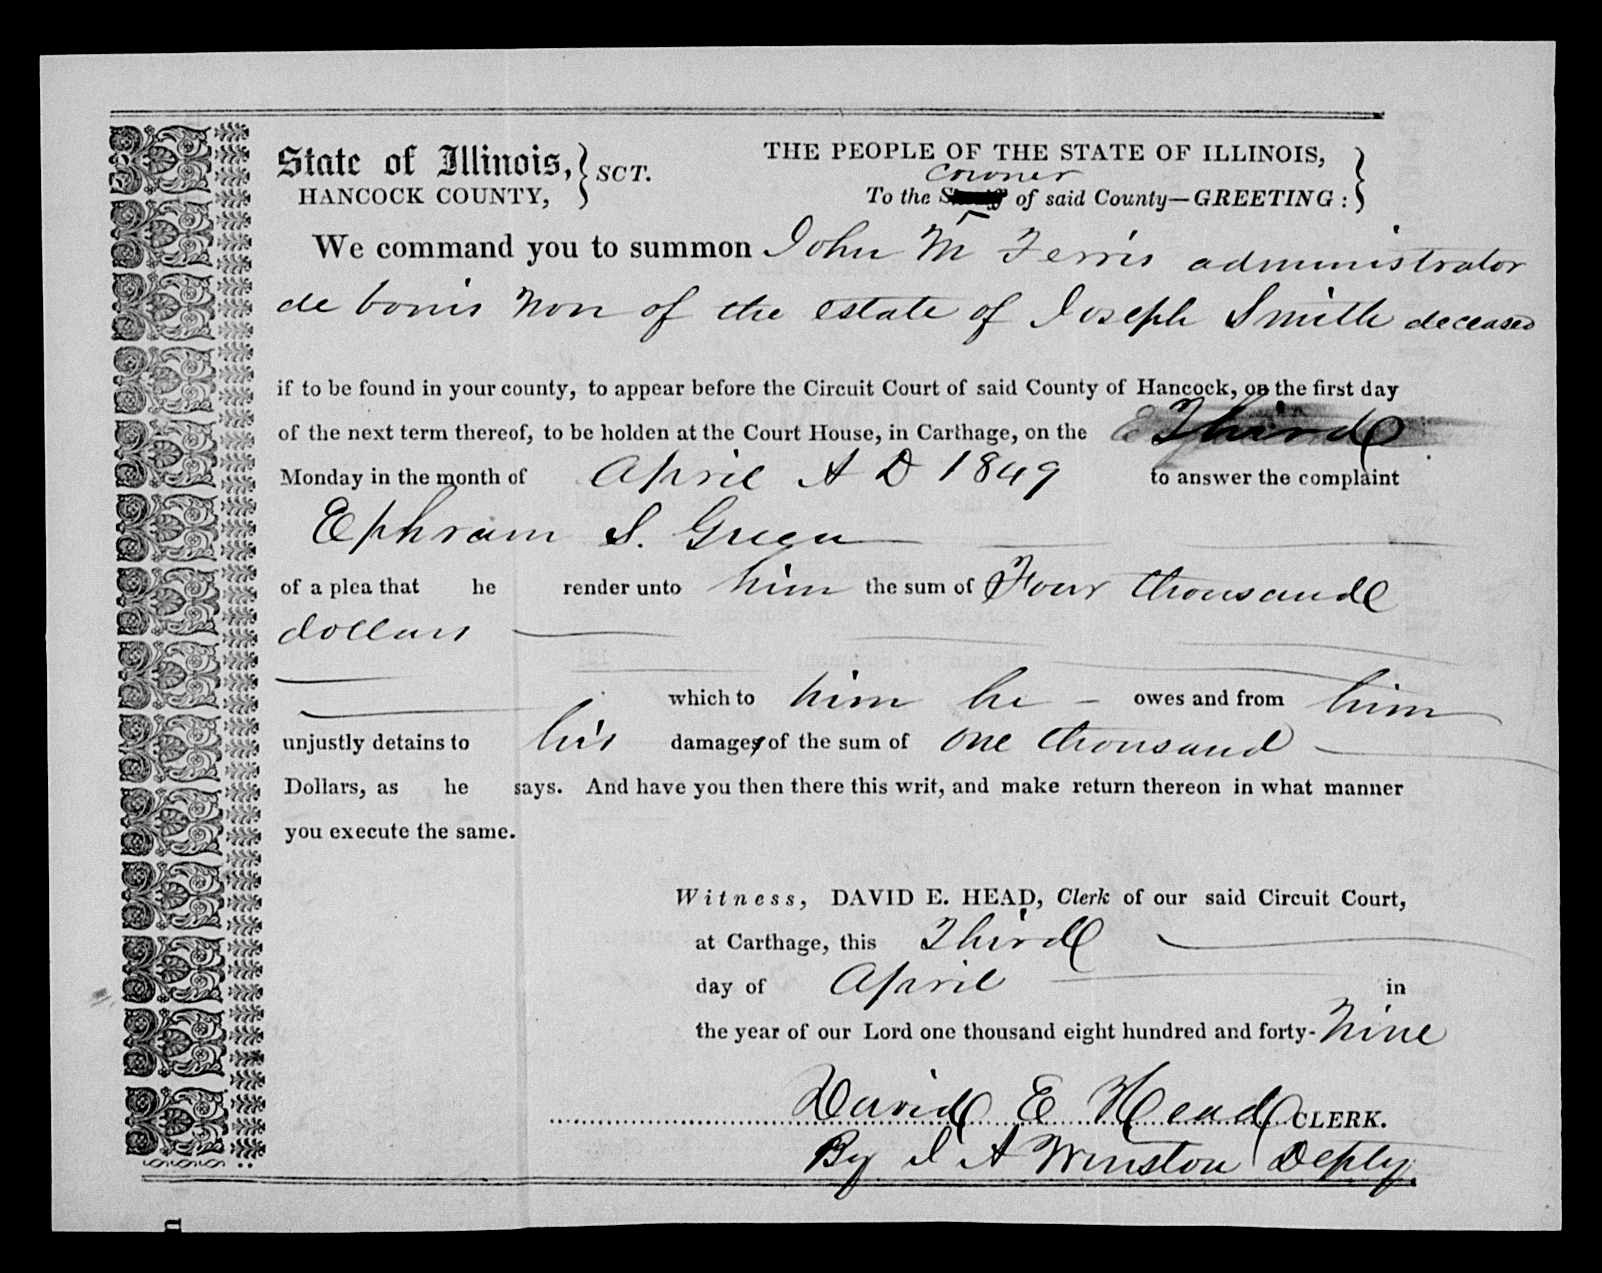 State of Illinois, } SCT.
HANCOCK COUNTY,
THE PEOPLE OF THE STATE OF ILLINOIS,
Coroner
To the Sheriff of said County—GREETING : }
We command you to summon John M Ferris administrator
de bonis non of the estate of Joseph Smith deceased
if to be found in your county, to appear before the Circuit Court of said County of Hancock, on the first day
of the next term thereof, to be holden at the Court House, in Carthage, on the Third
Monday in the month of April A D 1849 to answer the complaint
Ephraim S. Green
of a plea that he render unto him the sum of Four thousand
dollars
which to him he owes and from him
unjustly detains to his damages of the sum of one thousand
Dollars, as he says. And have you then there this writ, and make return thereon in what manner
you execute the same.
Witness, DAVID E. HEAD, Clerk of our said Circuit Court,
at Carthage, this Third
day of April in
the year of our Lord one thousand eight hundred and forty-Nine
David E Head CLERK.
By I A Winston Depty.